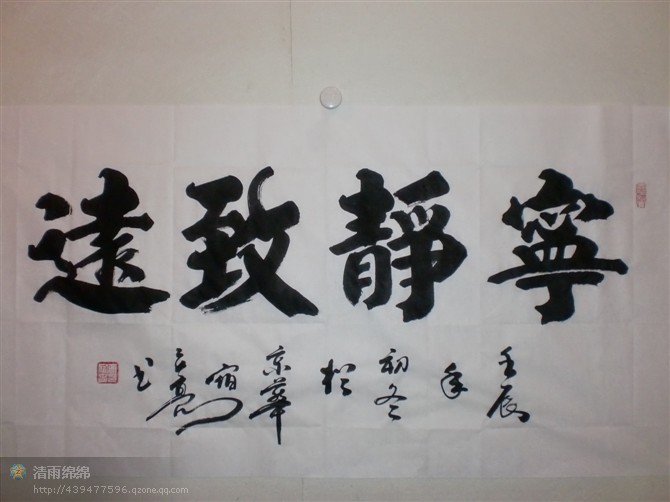 寧靜致遠
壬辰
年
初冬
於
京華
亮
书
清雨绵绵
http://439477596.qzone.qq.com